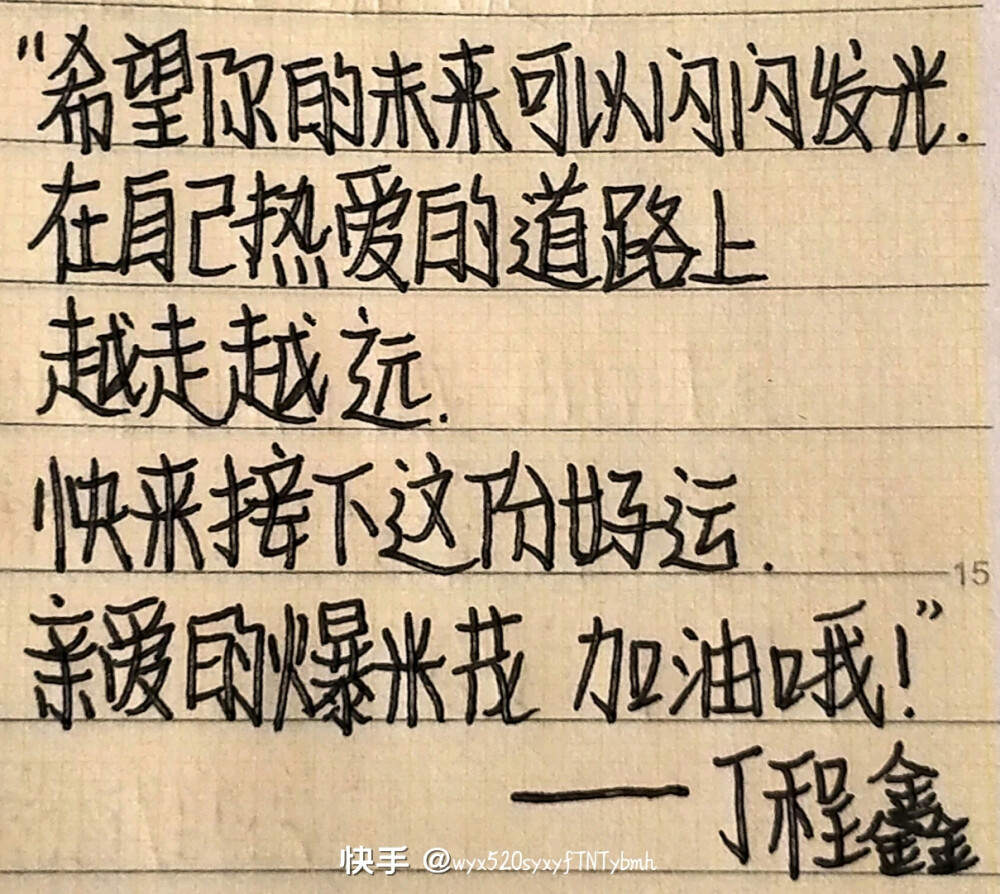 “希望你的未来可以闪闪发光.
在自己热爱的道路上
越走越远.
快来接下这份好运.
15
亲爱的爆米花 加油哦！”
——丁程鑫
快手 @wyx520syxyfTNTybmh